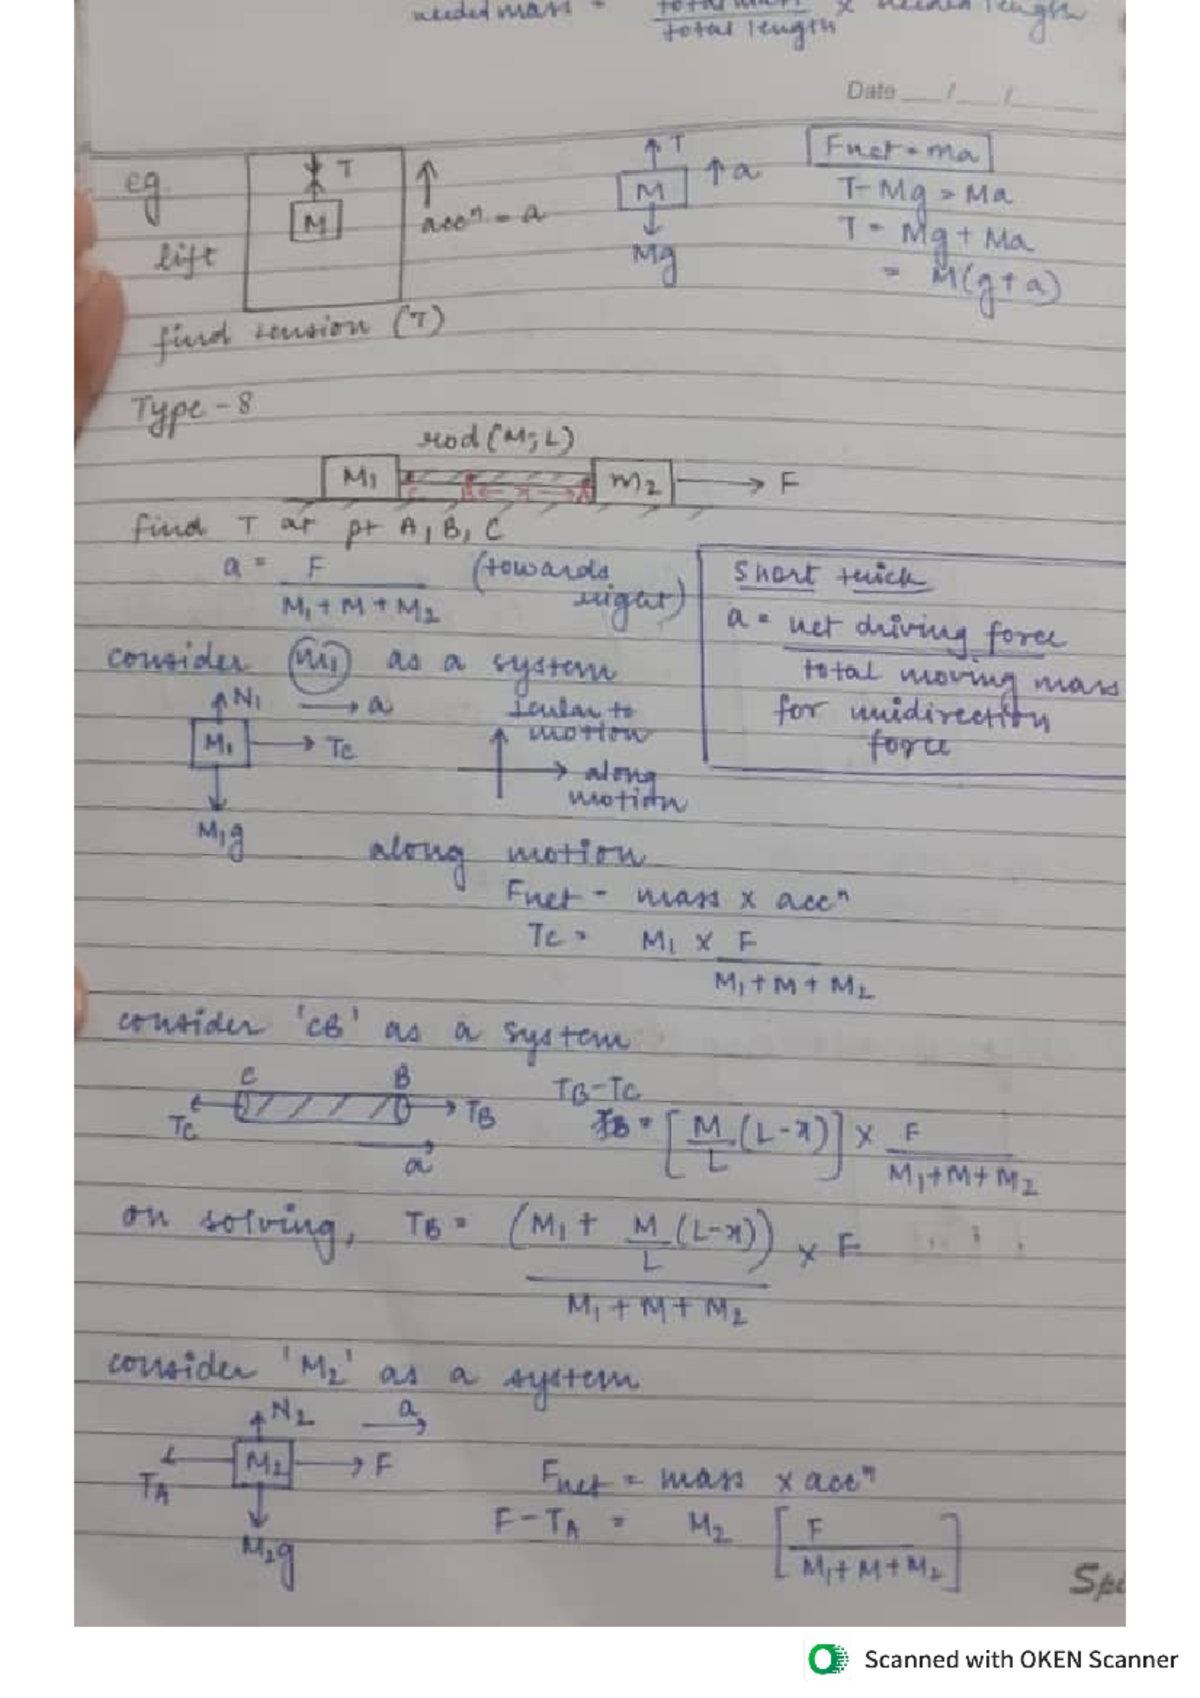 needed mass = total mass x needed length
total length
Date __/__/____
eg.
lift
T
M
accⁿ = a
T
M
a
Mg
Fnet = ma
T - Mg = Ma
T = Mg + Ma
= M(g+a)
find tension (T)
Type - 8
rod (M, L)
M₁
m₂
F
find T at pt A, B, C
a = F (towards right)
M₁ + M + M₂
Short trick
a = net driving force
total moving mass
for unidirection
force
consider m₁ as a system
N₁
a
M₁
Tc
M₁g
⊥cular to
motion
along
motion
along motion
Fnet = mass x accⁿ
Tc = M₁ x F
M₁ + M + M₂
consider 'CB' as a system
C B
Tc
TB
a
TB - Tc
= [M/L (L-x)] x F
M₁+M+M₂
on solving, TB = (M₁ + M/L (L-x)) x F
M₁ + M + M₂
consider 'M₂' as a system
N₂
a
TA
M₂
F
M₂g
Fnet = mass x accⁿ
F - TA = M₂ [F
M₁+M+M₂]
Scanned with OKEN Scanner